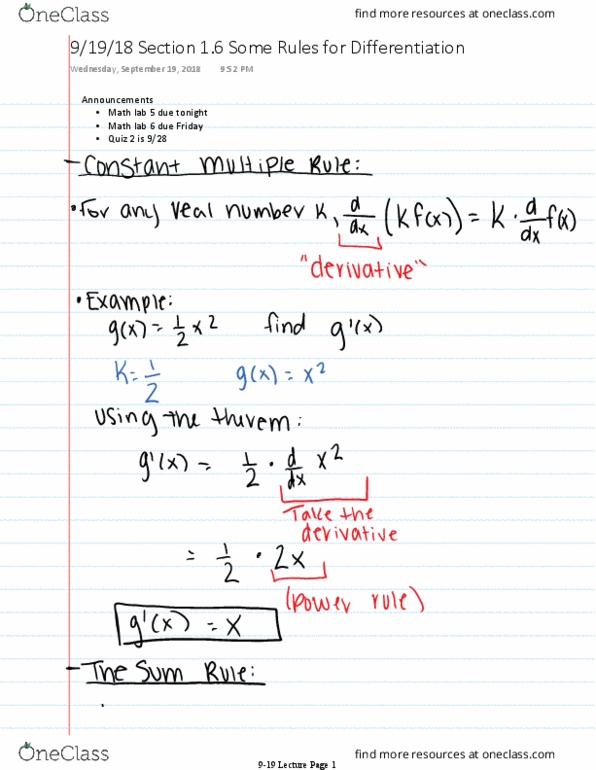 OneClass find more resources at oneclass.com
9/19/18 Section 1.6 Some Rules for Differentiation
Wednesday, September 19, 2018 9:52 PM
Announcements
• Math lab 5 due tonight
• Math lab 6 due Friday
• Quiz 2 is 9/28
- Constant Multiple Rule:
• For any real number K, d/dx (K f(x)) = K · d/dx f(x)
"derivative"
• Example:
g(x) = 1/2 x² find g'(x)
K = 1/2 g(x) = x²
Using the thurem:
g'(x) = 1/2 · d/dx x²
Take the
derivative
= 1/2 · 2x
(power rule)
g'(x) = x
- The Sum Rule:
OneClass find more resources at oneclass.com
9-19 Lecture Page 1